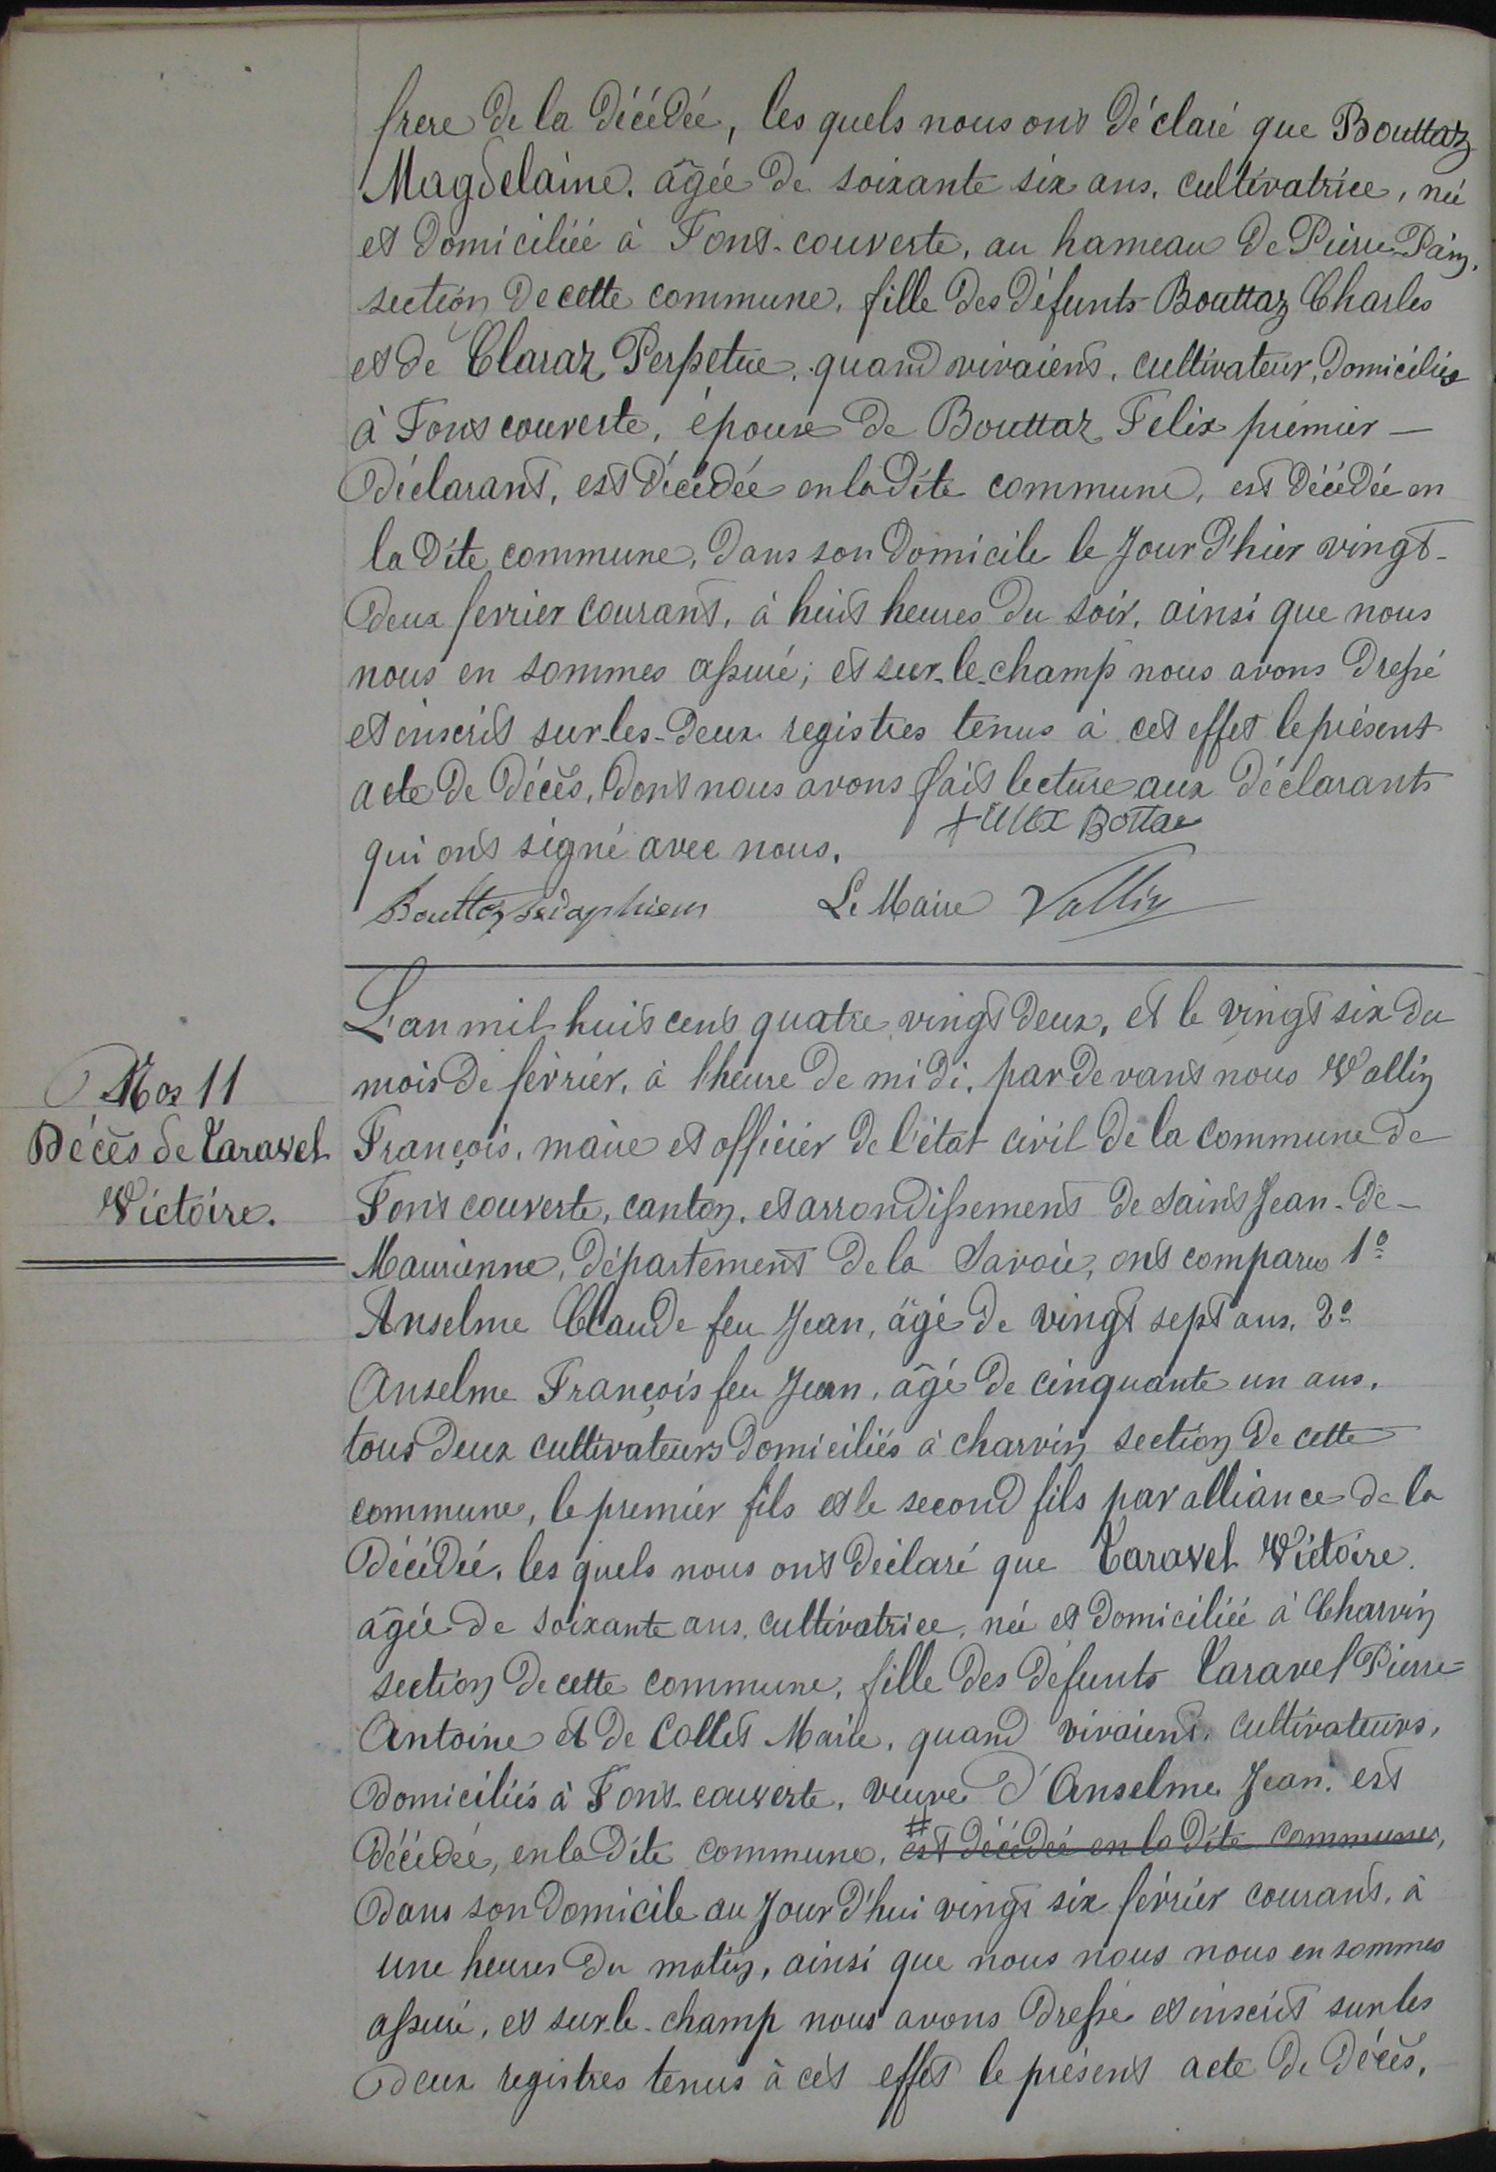 frere de la décédée, les quels nous ont déclaré que Bouttaz
Magdelaine, âgée de soixante six ans, cultivatrice, née
et domiciliée à Font-couverte, au hameau de Pierre-Pain,
section de cette commune, fille des défunts Bouttaz Charles
et de Claraz Perpetue, quand vivaient, cultivateur, domiciliés
à Font couverte, épouse de Bouttaz Felix premier —
Déclarant, est décédée en la dite commune, est décédée en
la dite commune, dans son domicile le jour d'hier vingt-
deux fevrier courant, à huit heures du soir, ainsi que nous
nous en sommes assuré; et sur-le-champ nous avons dressé
et inscrit sur-les-deux registres tenus à cet effet le présent
acte de décès, dont nous avons fait lecture aux déclarants
qui ont signé avec nous.
Felix Bottaz
Bouttaz Seraphien Le Maire Vallin
Nos 11
Décès de Taravel
Victoire.
L'an mil huit cent quatre vingt deux, et le vingt six du
mois de février, à l'heure de midi, par devant nous Vallin
François, maire et officier de l'état civil de la commune de
Font couverte, canton, et arrondissement de Saint Jean-de-
Maurienne, département de la Savoie, ont comparus 1º
Anselme Claude feu Jean, âgé de vingt sept ans, 2º
Anselme François feu Jean, âgé de cinquante un ans,
tous deux cultivateurs domiciliés à charvin section de cette
commune, le premier fils et le second fils par alliance de la
décédée, les quels nous ont déclaré que Taravel Victoire.
âgée de soixante ans, cultivatrice, née et domiciliée à Charvin
section de cette commune, fille des défunts Taravel Pierre=
Antoine et de Collet Marie, quand vivaient, cultivateurs,
domiciliés à Font couverte, veuve d'Anselme Jean, est
décédée, en la dite commune, # est décédée en la dite commune,
dans son domicile au jour d'hui vingt six février courant, à
une heures du matin, ainsi que nous nous nous en sommes
assuré, et sur-le-champ nous avons dressé et inscrit sur les
deux registres tenus à cet effet le présent acte de décès,